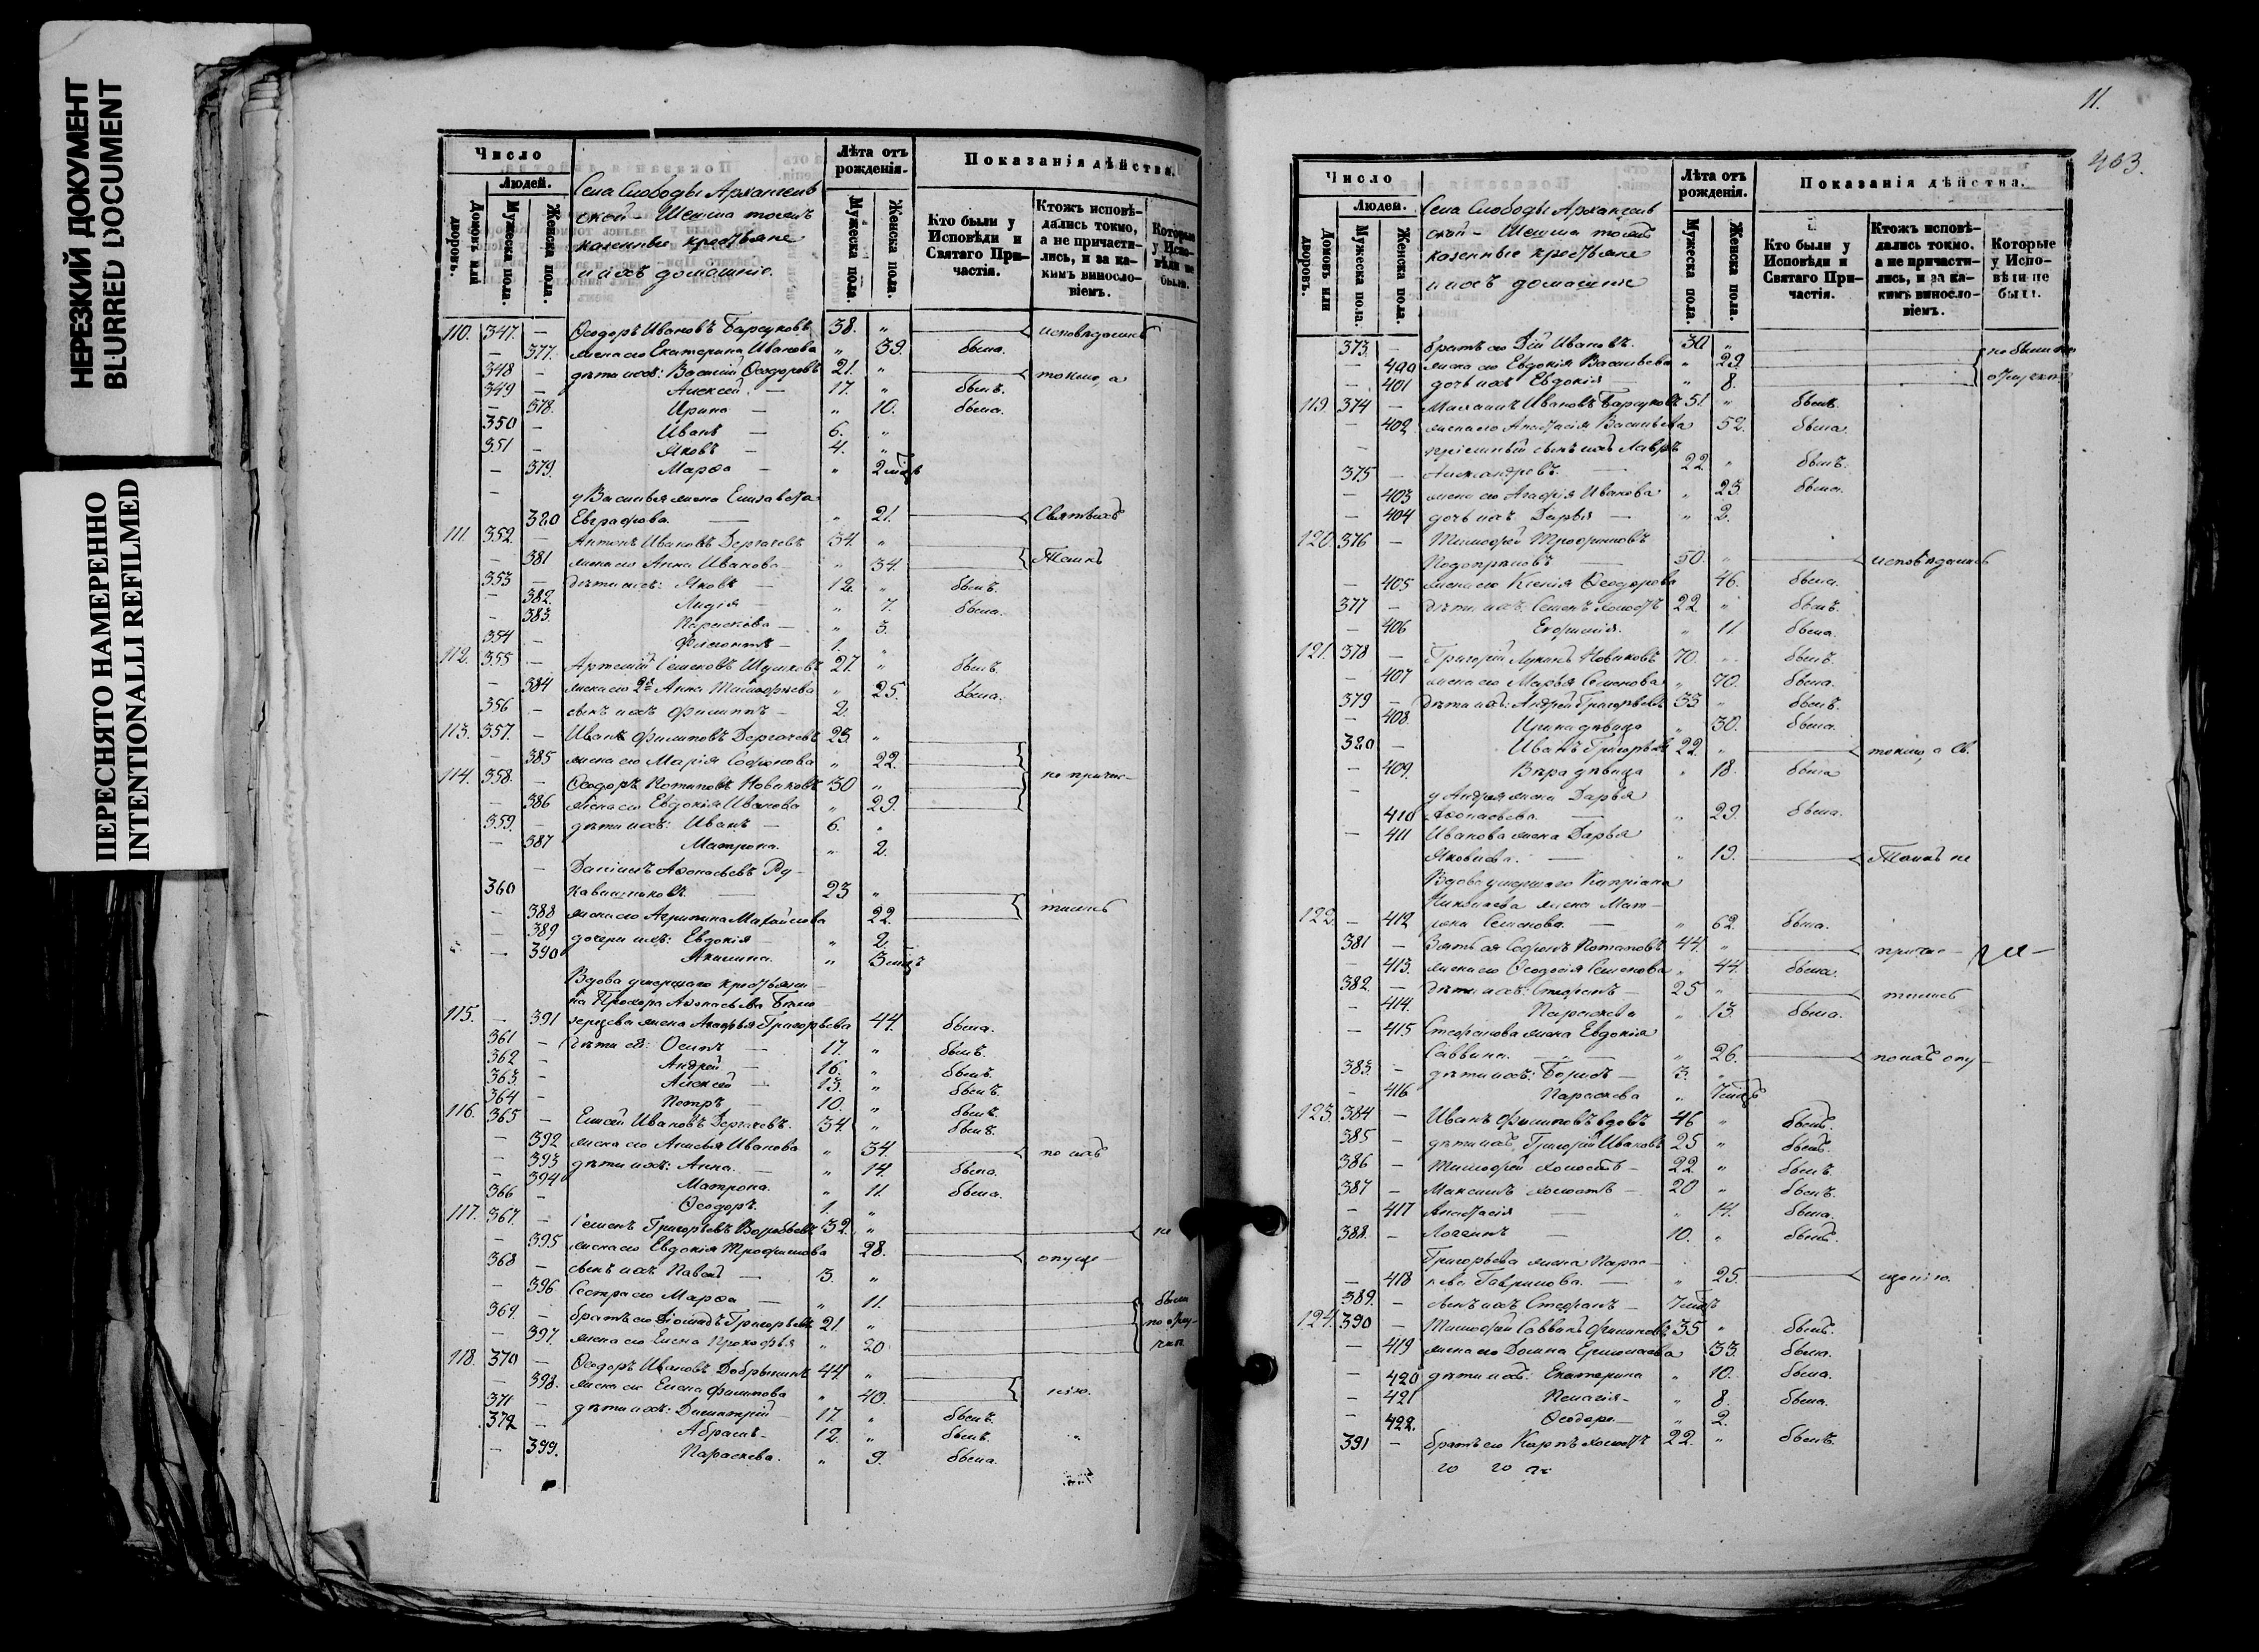 НЕРЕЗКИЙ ДОКУМЕНТ
BLURRED DOCUMENT
ПЕРЕСНЯТО НАМЕРЕННО
INTENTIONALLI REFILMED
Число
Людей.
Домовъ или дворовъ.
Мужеска пола.
Женска пола.
Села Слободы Архангель
ской – Шешма тожъ
казенные крестьяне
и ихъ домашніе.
Лѣта отъ рожденія.
Мужеска пола.
Женска пола.
Показанія дѣйства.
Кто были у Исповѣди и Святаго Причастія.
Ктожъ исповѣдались токмо, а не причастились, и за какимъ винословіемъ.
Которые у Исповѣди не были.
110. 347. – Ѳеодоръ Ивановъ Барсуковъ 38. „ исповѣдались
– 377. жена его Екатерина Иванова „ 39. была.
348 – дѣти ихъ: Василій Ѳеодоровъ 21. „ токмо, а
349 – Алексей. – 17. „ былъ.
– 378. Ирина – „ 10. была.
350 – Иванъ – 6. „
351 – Яковъ – 4. „
– 379. Марѳа – „ 2
– у Василья жена Елизавета
380 Евграфова. „ 21. Святыхъ
111. 352. – Антонъ Ивановъ Дергачевъ 34. „
– 381 жена его Анна Иванова „ 34. Таинъ
353 – дѣти ихъ: Яковъ – 12. „ былъ.
– 382. Лидія – „ 7. была.
– 383. Параскева – „ 3.
354 – Филиппъ – 1. „
112. 355 – Артемій Семеновъ 27. „ былъ.
– 384 жена его 2я Анна Тимофеева „ 25. была.
356 – сынъ ихъ Филиппъ – 2.
113. 357. – Иванъ Филиповъ Дергачевъ 23. „
– 385 жена его Марія Софонова „ 22.
114. 358. – Ѳеодоръ Потаповъ Новиковъ 30 „ не причас–
– 386 жена его Евдокія Иванова „ 29.
359. – дѣти ихъ: Иванъ – 6. „
– 387 Матрона. „ 2.
– Даніилъ Аѳонасьевъ Ру–
360 кавишниковъ. 23 „
– 388 жена его Агрипина Михайлова 22. тились
– 389 дочери ихъ: Евдокія – „ 2.
– 390 Акилина. „ 3
Вдова умершаго крестьяни–
на Прохора Аѳонасьева Бело
115. – 391 жена Агафья Григорьева 44. была.
361 – Дѣти ея: Осипъ – 17. „ былъ.
362 – Андрей – 16. „ былъ.
363. – Алексей – 13. „ былъ.
364 – Петръ – 10. „ былъ.
116. 365 – Елисей Ивановъ Дергачевъ. 34. „ былъ.
– 392 жена его Анисья Иванова „ 34. по ихъ
– 393 дѣти ихъ: Анна. – „ 14. была.
– 394 Матрона. „ 11. была.
366 – Ѳеодоръ. 1. „
117. 367. – Семенъ Григорьевъ Воробьевъ 32. „ не
– 395 жена его Евдокія Трофимова 28. опуще
368 – сынъ ихъ Павелъ – 3. „
– 396 Сестра его Марѳа – „ 11. были
369. – братъ его Діомидъ Григорьевъ 21. „
– 397. жена его Елена Прокофья „ 20
118. 370 – Ѳеодоръ Ивановъ Добрынинъ 44. „
– 398. жена его Елена Филипова „ 40. нію.
371 – дѣти ихъ: Димитрій – 17. „ былъ.
372 – Абрамъ – 12. „ былъ.
– 399. Параскева. „ 9. была.
11.
403.
Число
Людей.
Домовъ или дворовъ.
Мужеска пола.
Женска пола.
Села Слободы Архангель
ской – Шешма тожъ
казенные крестьяне
и ихъ домашніе
Лѣта отъ рожденія.
Мужеска пола.
Женска пола.
Показанія дѣйства.
Кто были у Исповѣди и Святаго Причастія.
Ктожъ исповѣдались токмо, а не причастились, и за какимъ винословіемъ.
Которые у Исповѣди не были.
373. – братъ его Дій Ивановъ. 30 „
– 400 жена его Евдокія Васильева „ 29.
– 401 дочь ихъ Евдокія – „ 8.
119. 374 – Ивановъ Барсуковъ 51. „ былъ.
– 402. жена его Анастасія Васильева 52. была.
пріемный сынъ ихъ Лавръ
375 – Александровъ. – 22. „ былъ.
– 403 жена его Агафія Иванова „ 23. была.
– 404 дочь ихъ Дарья – „ 2.
120 376 – Тимофей Трофимовъ
50. „ исповѣдались
– 405 жена его Ксенія Ѳеодорова 46. была.
377 – дѣти ихъ: Семенъ холостъ 22. „ былъ.
– 406 Евфимія. „ 11. была.
121. 378 – Григорій Лукинъ Новиковъ 70. „ былъ.
– 407 жена его Марья Семенова „ 70. была.
379 – дѣти ихъ: Андрей Григорьевъ 33 „ былъ.
– 408. Ирина дѣвица „ 30. была.
380 – Иванъ Григорьевъ 22. „ токмо, а Св.
– 409. Вѣра дѣвица „ 18. была
– у Андрея жена Дарья
410 Аѳонасьева. – „ 29. была.
– 411 Иванова жена Дарья
Яковлева. – „ 19. Таинъ не
Вдова умершаго Кипріана
Николаева жена Мат–
122. – 412 рена Семенова. – „ 62. была.
381 – Зять ея Софонъ Потаповъ 44. „ прича–
– 413. жена его Ѳеодосія Семенова „ 44. была.
382. – дѣти ихъ: Стефанъ – 25 „ тились
– 414. Параскева „ 13. была.
– 415 Стефанова жена Евдокія
Саввина. – „ 26. по ихъ опу–
383. – дѣти ихъ: Борисъ – 3. „
– 416 Параскева „ 7
123. 384 – Иванъ Филиповъ вдовъ 46 „ былъ.
385 – дѣти ихъ, Григорій Ивановъ 25 „ былъ.
386 – Тимофей холостъ – 22. „ былъ.
387 – Максимъ холостъ – 20 „ былъ.
– 417 Анастасія – „ 14. была.
388. – Логгинъ – 10. „ былъ.
Григорьева жена Парас–
– 418 кева Гаврилова. – 25. щенію.
389. – сынъ ихъ Стефанъ – 7
124. 390 – Тимофей Саввинъ Филиповъ 35 „ былъ.
– 419 жена его Домна Ермолаева 33. была.
– 420 дѣти ихъ: Екатерина „ 10. была.
– 421 Пелагія – „ 8. была.
– 422. Ѳеодора – „ 2.
391 – братъ его Карпъ холостъ 22. „ былъ.